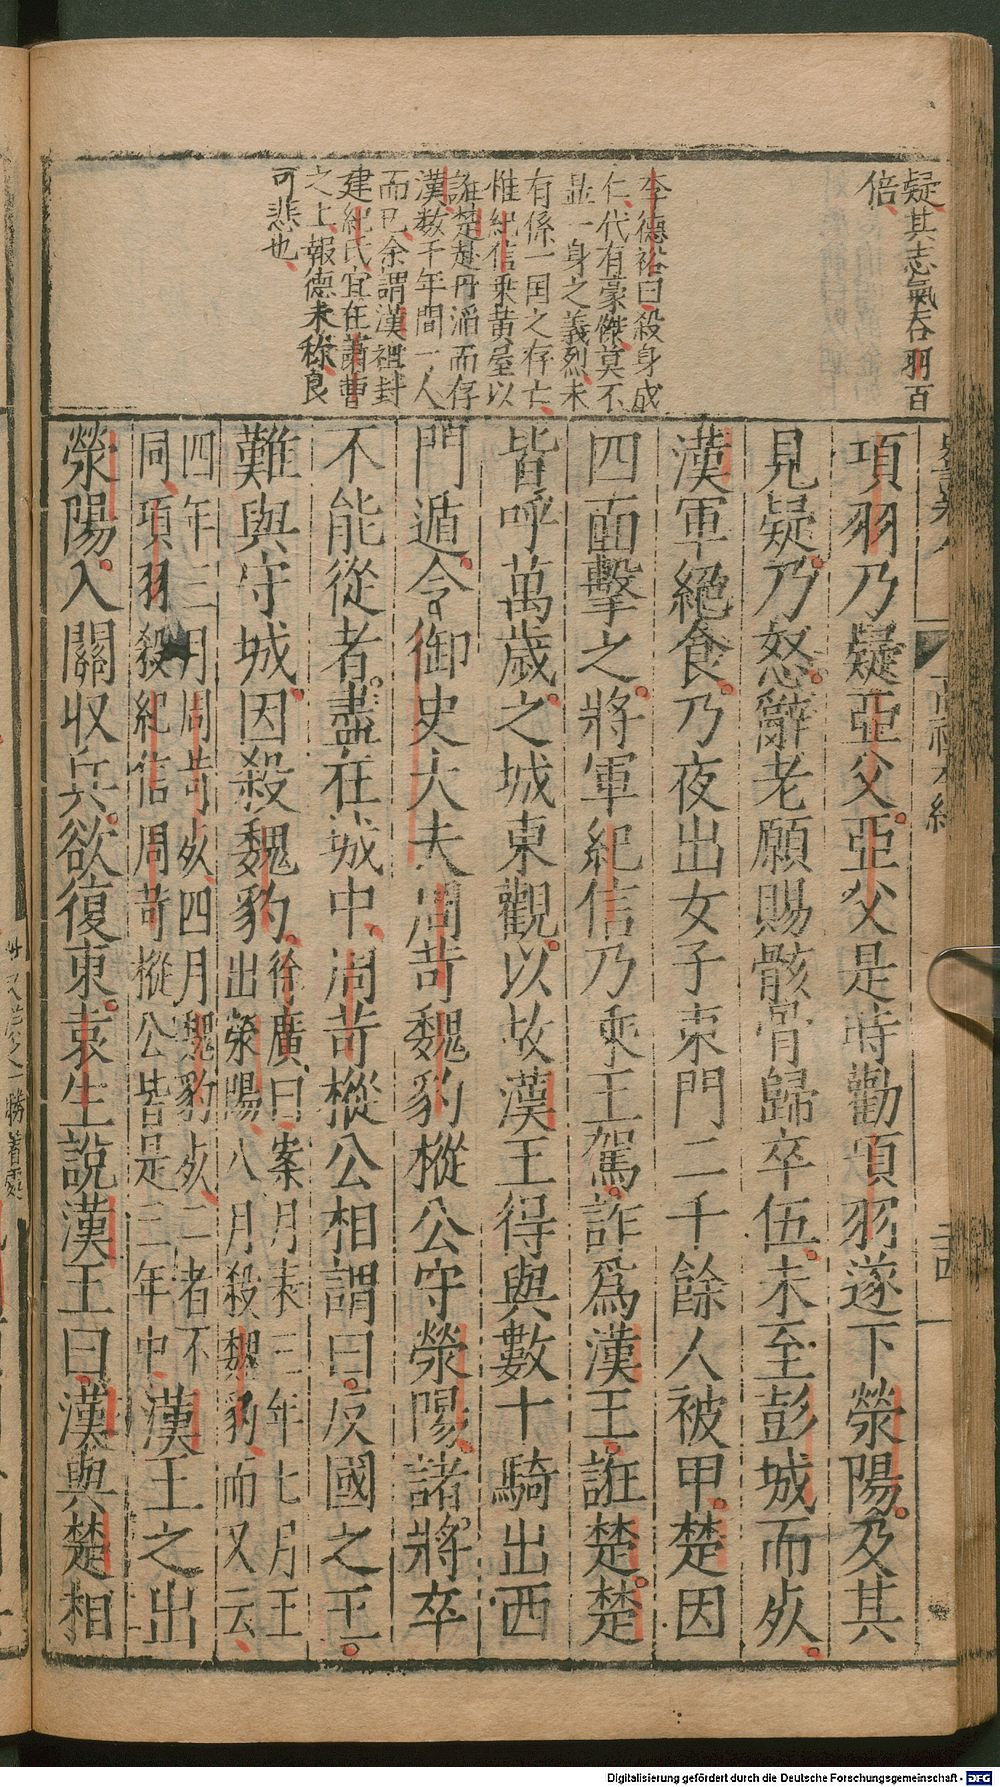 疑其志氣吞羽百
倍、
李德裕曰、殺身成
仁、代有豪傑、莫不
显一身之義烈、未
有係一国之存亡、
惟紀信乗黄屋以
誑楚、赴丹焰而存
漢、数千年間一人
而已、余謂漢祖封
建紀氏、宜在蕭曹
之上、報德未称、良
可悲也、
項羽乃疑亞父。亞父是時勸項羽遂下滎陽。及其
見疑。乃怒。辭老願賜骸骨歸卒伍。未至彭城而死。
漢軍絕食。乃夜出女子東門二千餘人被甲。楚因
四面擊之。將軍紀信乃乘王駕。詐爲漢王。誑楚。楚
皆呼萬歲。之城東觀。以故漢王得與數十騎出西
門遁。令御史大夫周苛魏豹樅公守滎陽。諸將卒
不能從者。盡在城中、周苛樅公相謂曰。反國之王。
難與守城。因殺魏豹。徐廣曰、案月表三年七月王
出滎陽、八月殺魏豹、而又云、
四年三月周苛死、四月魏豹死、二者不
同、項羽殺紀信周苛樅公皆是三年中、漢王之出
滎陽。入關収兵。欲復東。袁生說漢王曰、漢與楚相
高祖本紀
二四
Digitalisierung gefördert durch die Deutsche Forschungsgemeinschaft - DFG